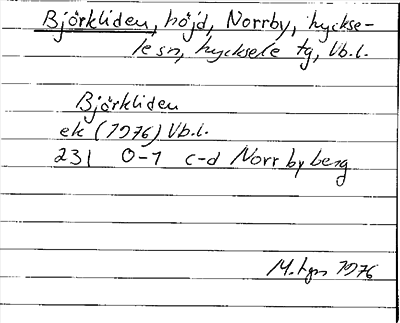 Björkliden, höjd, Norrby, hyckse-
le sn, hycksele tg, Vb.l.
Björkliden
ek (1976) Vb.l.
231 0-1 c-d Norrbyberg
1976